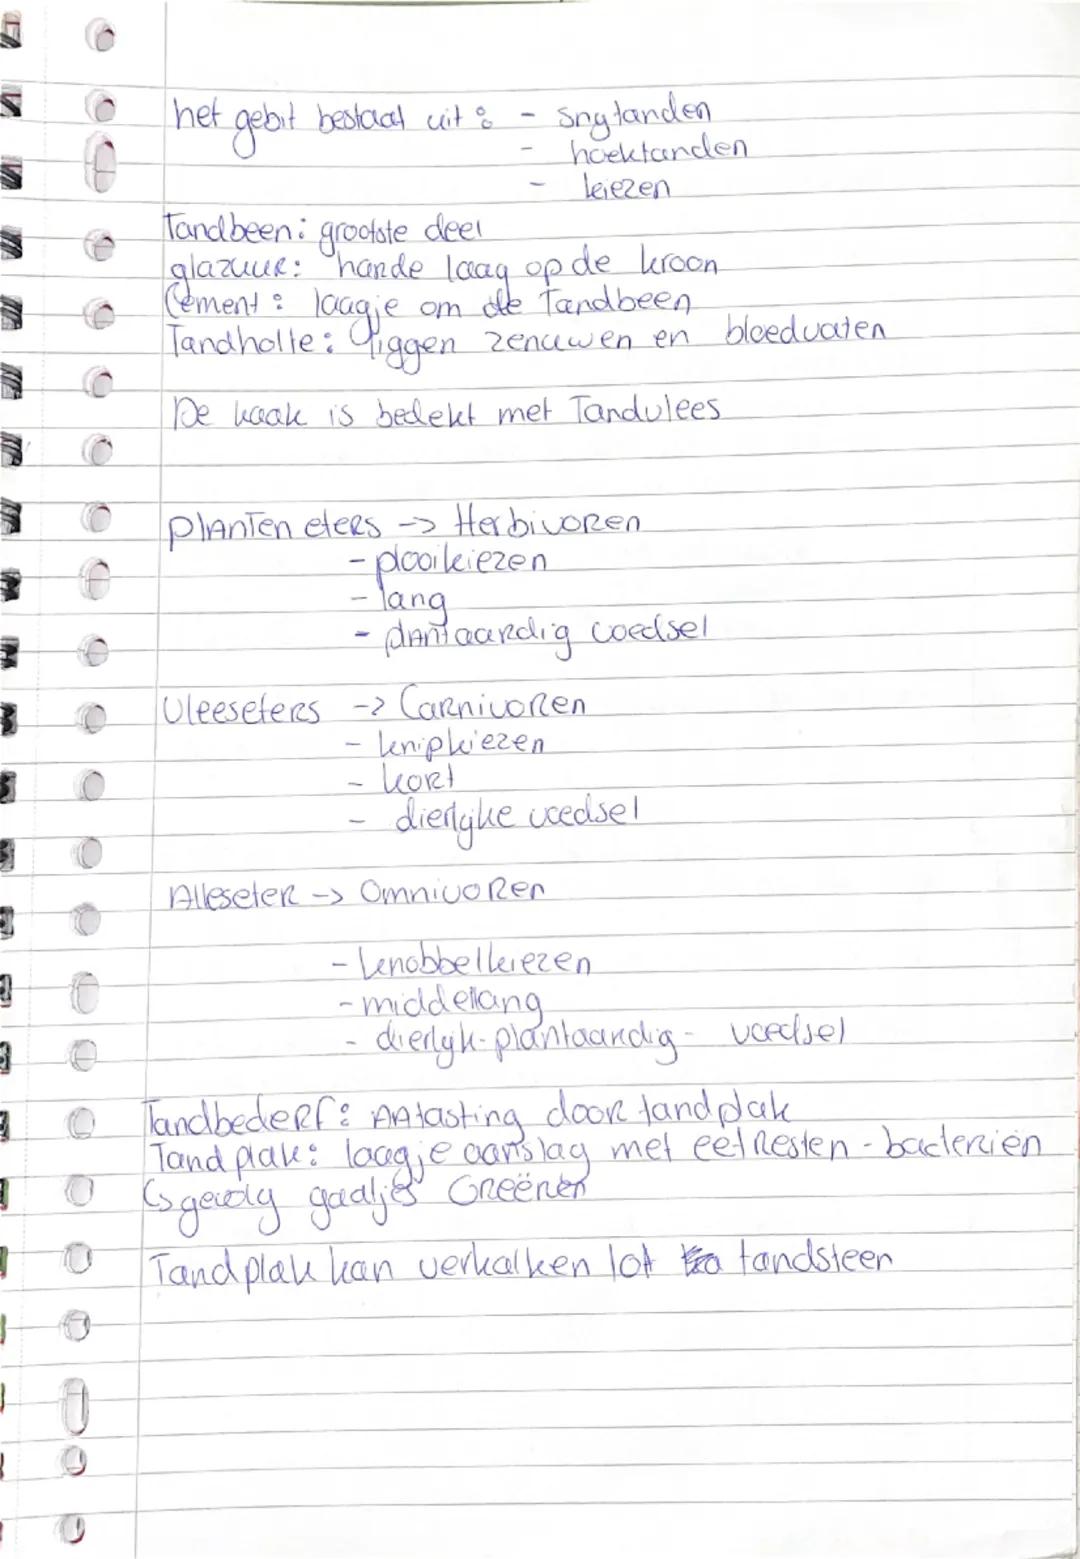 het gebit bestaat uit: - snytanden
- hoektanden
- kiezen
Tandbeen: grootste deel
glazuur: harde laag op de kroon
Cement: laagje om de Tandbeen
Tandholte: liggen zenuwen en bloedvaten
De kaak is bedekt met Tandvlees
planten eters -> Herbivoren
- plooikiezen
- lang
- plantaardig voedsel
Vleeseters -> Carnivoren
- knipkiezen
- kort
- dierlyke voedsel
Alleseter -> Omnivoren
- knobbelkiezen
- middellang
- dierlyk-plantaardig- voedsel
Tandbederf: AAtasting door tandplak
Tandplak: laagje aanslag met eetresten - bacteriën
gaatjes Creëren
Tandplak kan verkalken tot tandsteen